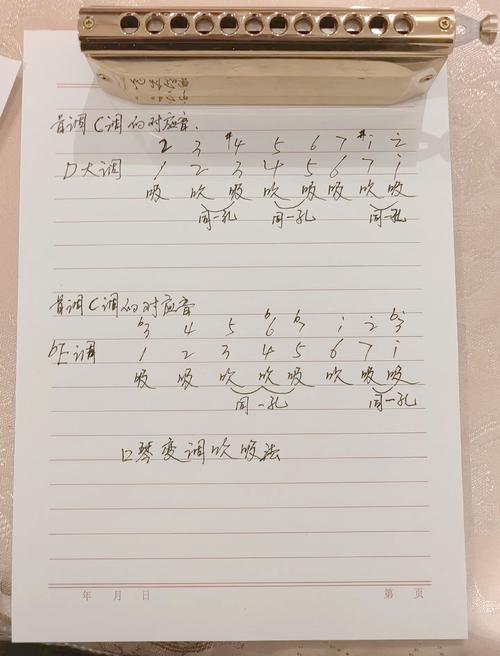 首调C调的对应音.
2 3 #4 5 6 7 #i 2̇
D大调 1 2 3 4 5 6 7 i
吸 吹 吸 吹 吸 吸 吹 吸
同一孔 同一孔 同一孔
首调C调的对应音
b3 4 5 b6 b7 i 2̇ b3̇
bE调 1 2 3 4 5 6 7 i
吸 吸 吹 吹 吸 吹 吸 吸
同一孔 同一孔
口琴变调吹吸法
年 月 日 第 页